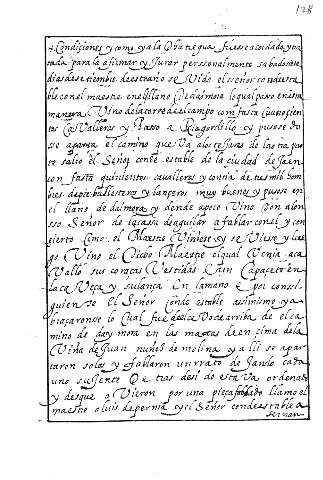 128
y Condiciones y como ya la Obiteguas fuesse acordada y pa
tada para la afirmar y Jurar personalmente sabado siete
dias de setiembre de este año se Vido el señor condesta
ble con el maestre en el llano de daimora lo qual paso en esta
manera Vino de la torre del campo con fasta quatrocientos
Cavalleros y Passo a Riogordillo y pusose do
se aparta el camino que Va a los tejares de las tra pue
te salio el Señor condestable de la ciudad de Jaen
con fasta quinientos cavalleros y con fasta de tres mil hom
bres de pie ballesteros y lanceros muy buenos y pusose en
el llano de daimora y dende apoco Vino Don alon
sso Señor de la casa de aguilar a fablar con el y con
cierto Como el Maestre Viniese y se Viese y lue
go Vino el Dicho Maestre el qual Venia a ca
Vallo sus coraças Vestidas e un Capacete en
la caveça y su lança En la mano E por consi
guiente El Señor Condestable assimismo y a
braçaronse lo Cual fue de el cavo de arriba de el ca
mino de daymora en las matas de en cima de la
Viña de Juan nuñez de molina y alli se apar
taron solos y fablaron un rrato de Jando cada
uno su Jente De tras de si do estava ordenado
y desque oVieron por una pieça fablado llamo el
maestro a luis de pernia y el Señor condestable a
fernan